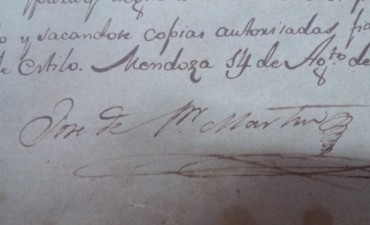 o y sacandose copias autorisadas,
de Estilo. Mendoza 14 de Agto. de
Jose de Sn. Martin